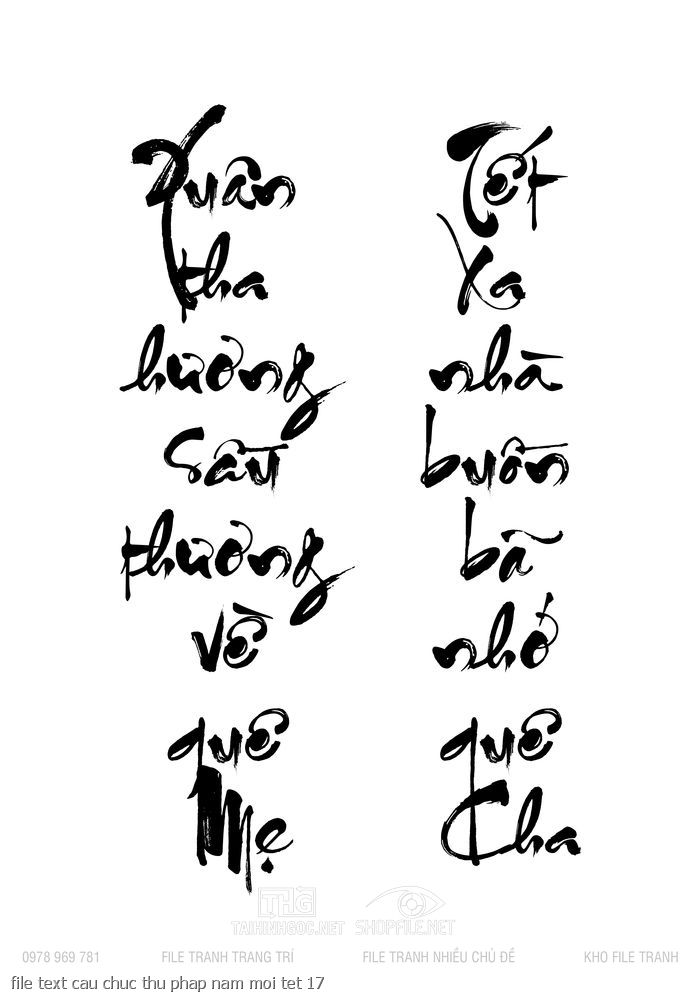 Xuân
tha
hương
sầu
thương
về
quê
Mẹ
Tết
xa
nhà
buồn
bã
nhớ
quê
Cha
THG
TAIHINHGOC.NET
SHOPFILE.NET
0978 969 781
FILE TRANH TRANG TRÍ
FILE TRANH NHIỀU CHỦ ĐỀ
KHO FILE TRANH
file text cau chuc thu phap nam moi tet 17